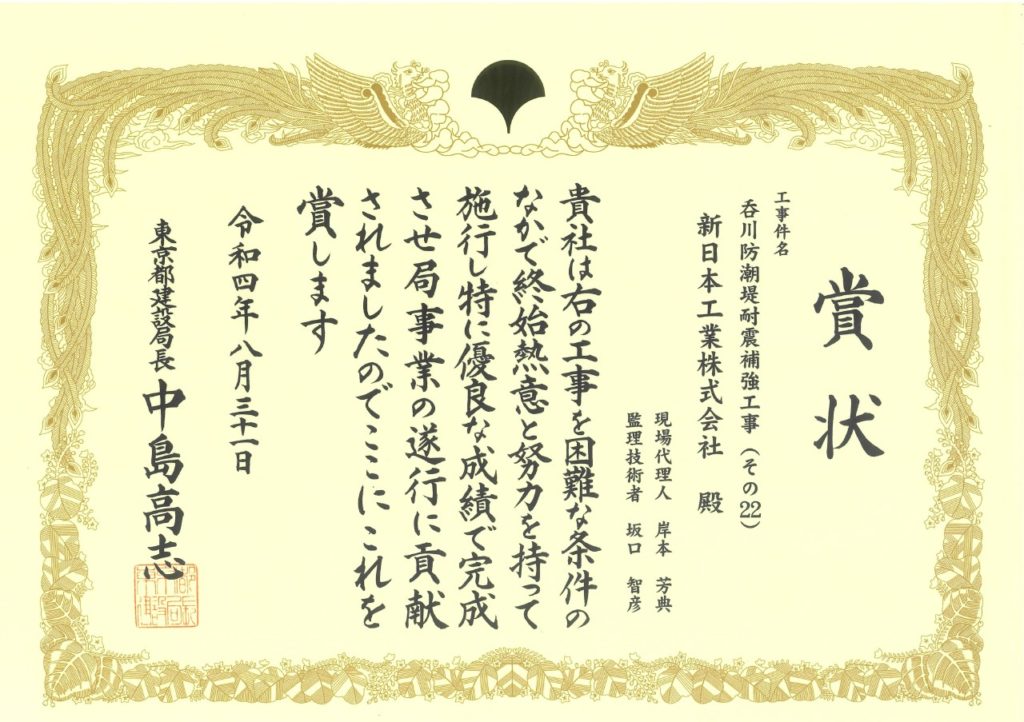 賞状
工事件名
呑川防潮堤耐震補強工事(その22)
新日本工業株式会社 殿
現場代理人 岸本 芳典
監理技術者 坂口 智彦
貴社は右の工事を困難な条件の
なかで終始熱意と努力を持って
施行し特に優良な成績で完成
させ局事業の遂行に貢献
されましたのでここにこれを
賞します
令和四年八月三十一日
東京都建設局長 中島高志